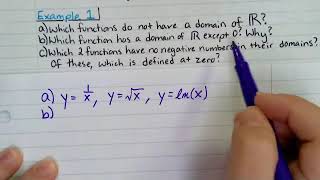 Example 1
a) Which functions do not have a domain of ℝ?
b) Which function has a domain of ℝ except 0? Why?
c) Which 2 functions have no negative numbers in their domains?
Of these, which is defined at zero?
a) y = 1/x, y = √x, y = ln(x)
b)